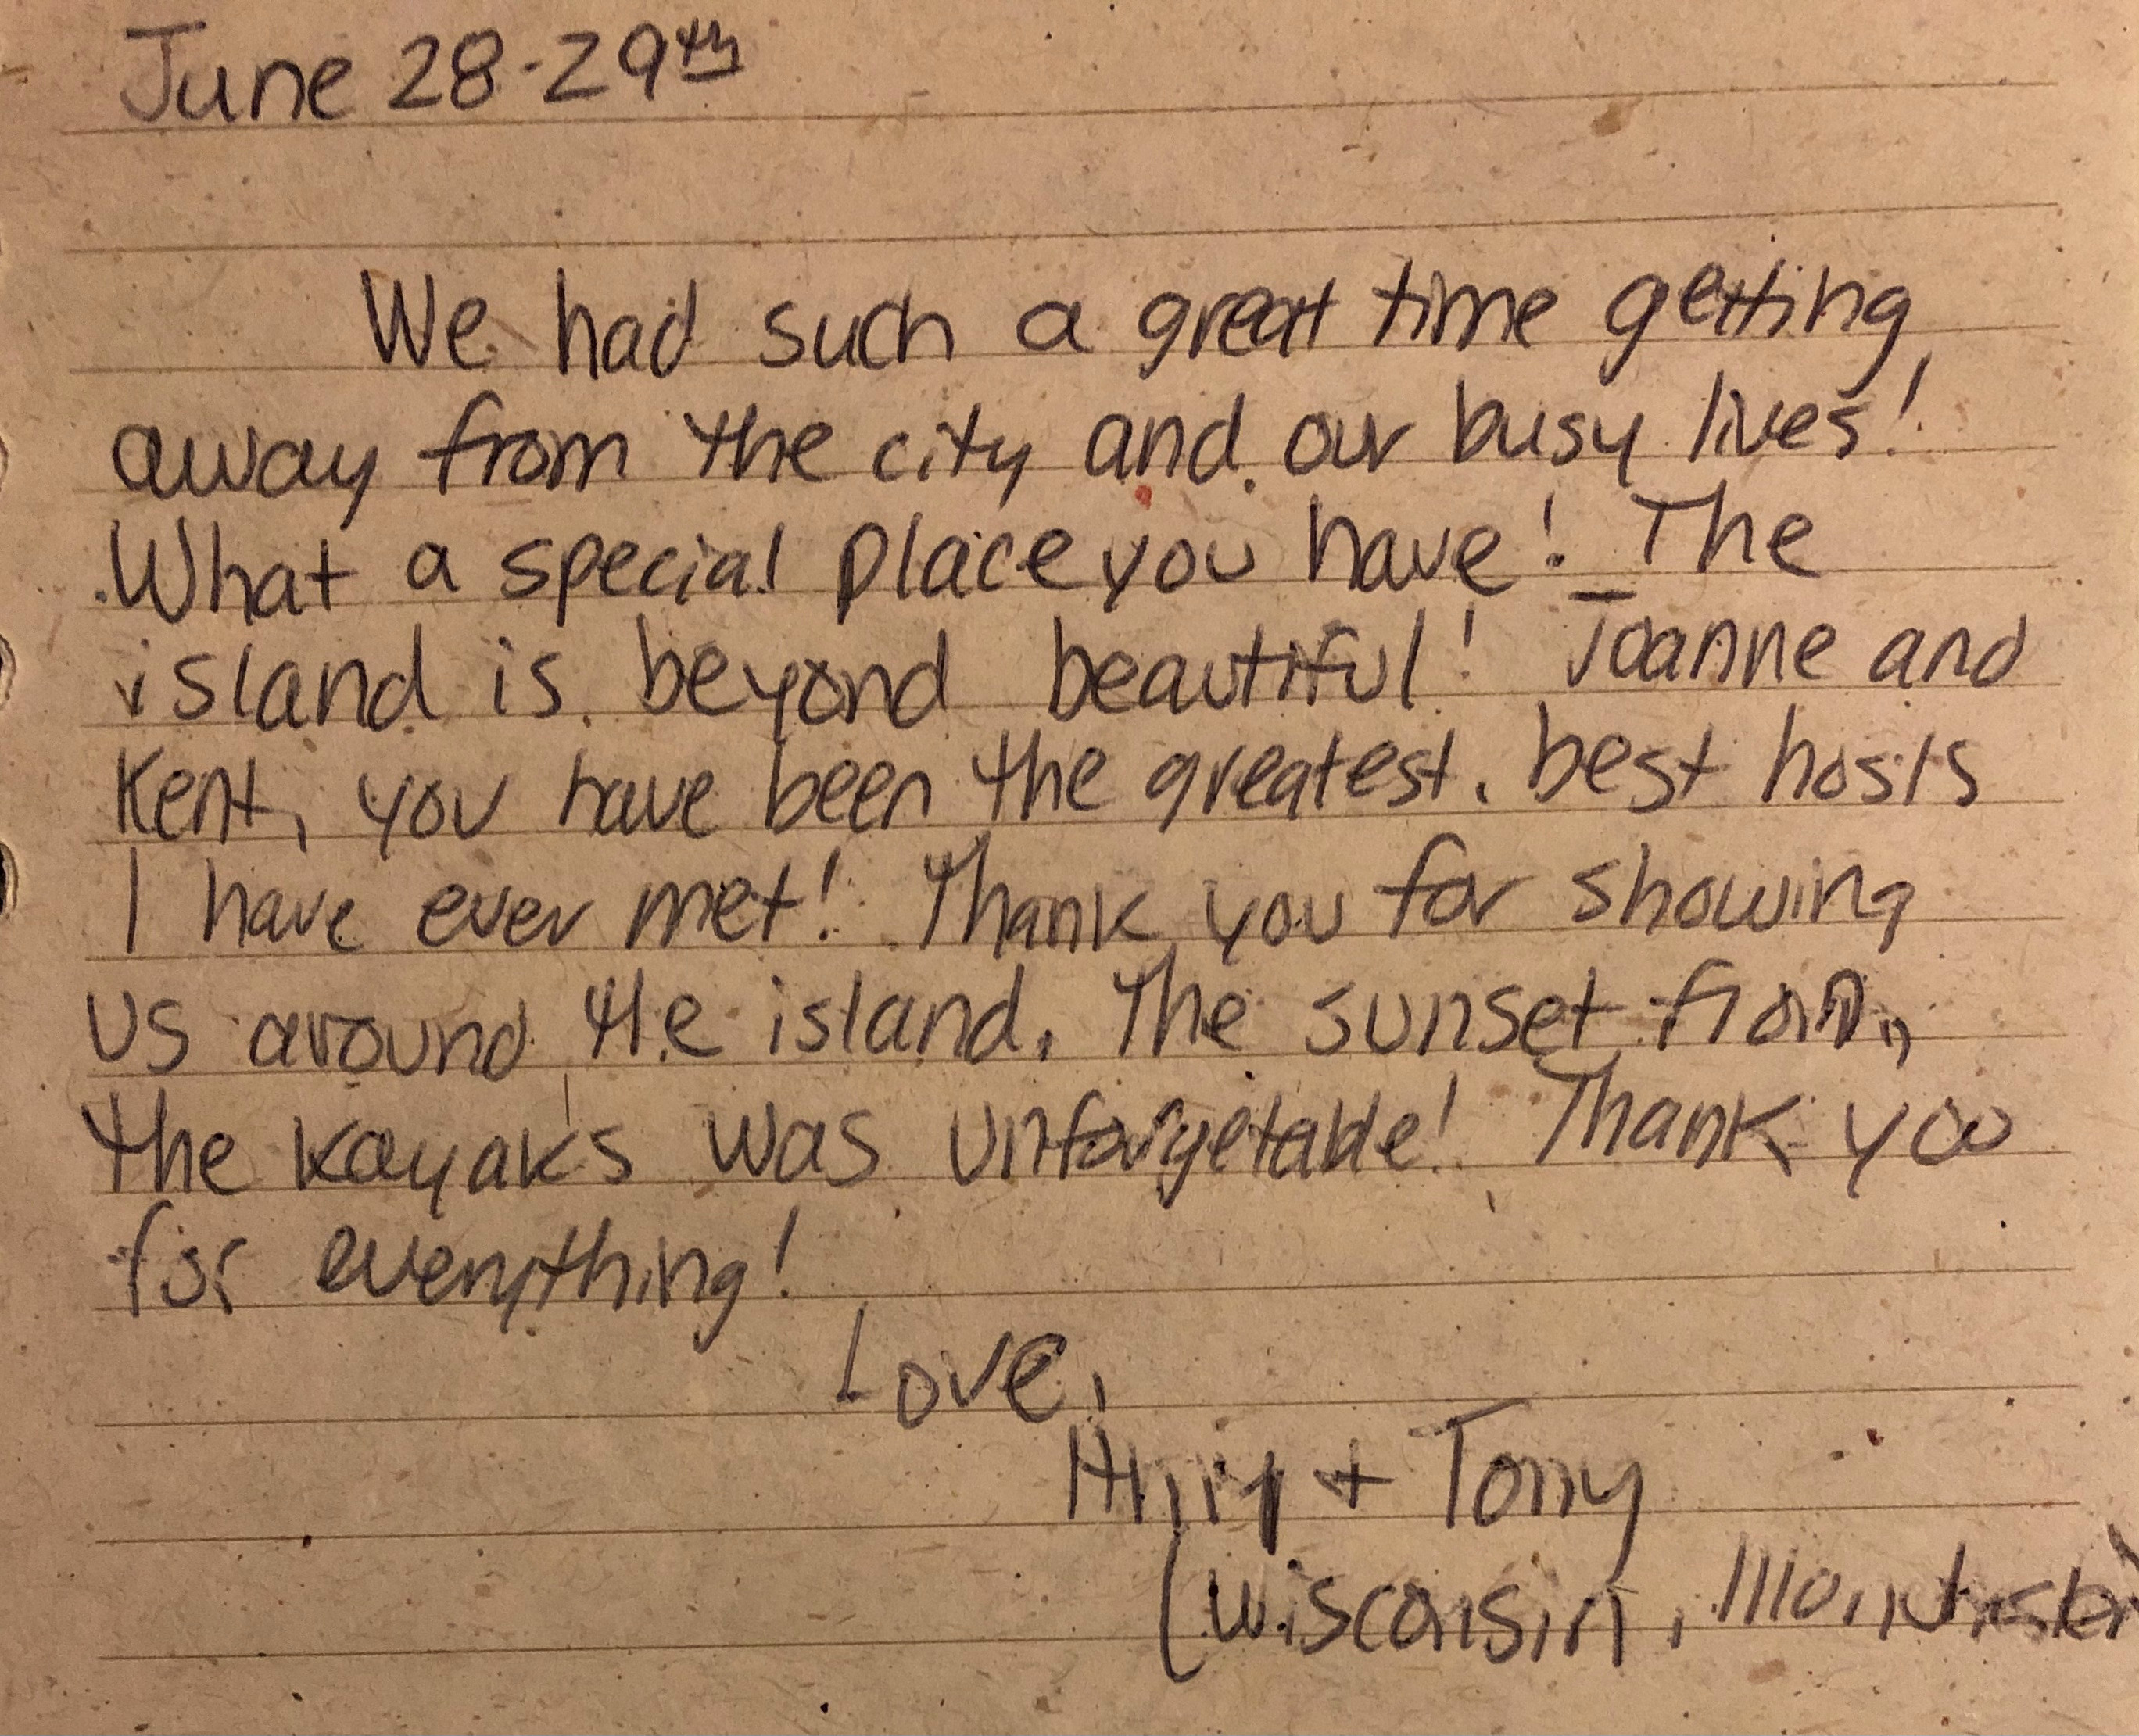 June 28-29th
We had such a great time getting
away from the city and our busy lives!
What a special place you have! The
island is beyond beautiful! Joanne and
Kent, you have been the greatest, best hosts
I have ever met! Thank you for showing
us around the island. The sunset from
the kayaks was unforgetable! Thank you
for everything!
Love,
+ Tony
(Wisconsin,